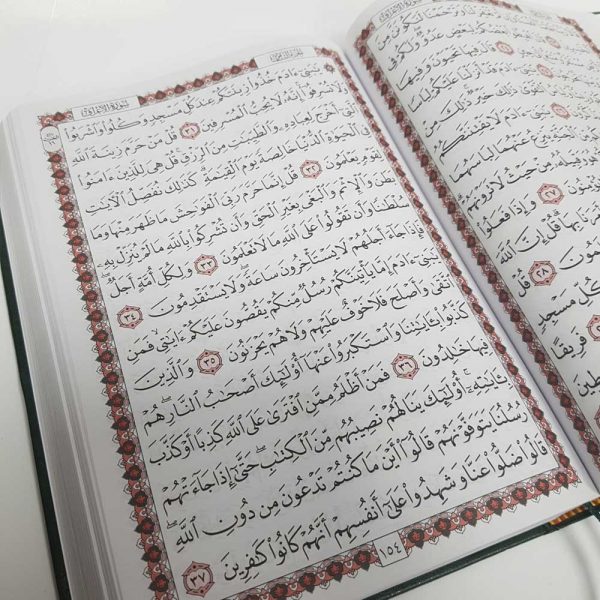 لَنَا وَتَرْحَمْنَا لَنَكُونَنَّ مِنَ
بَعْضُكُمْ لِبَعْضٍ عَدُوٌّ وَلَكُمْ فِي
قَالَ فِيهَا تَحْيَوْنَ وَفِيهَا
يَٰبَنِيٓ ءَادَمَ قَدْ أَنزَلْنَا عَلَيْكُمْ لِبَاسًا
ذَٰلِكَ خَيْرٌ ذَٰلِكَ مِنْ
يَٰبَنِيٓ ءَادَمَ لَا يَفْتِنَنَّكُمُ
يَنزِعُ عَنْهُمَا لِبَاسَهُمَا
هُوَ وَقَبِيلُهُ مِنْ حَيْثُ لَا تَرَوْنَهُمْ
٢٧ وَإِذَا فَعَلُوا
بِهَا قُلْ إِنَّ اللَّهَ
٢٨ قُلْ
كُلِّ مَسْجِدٍ
فَرِيقًا
سُورَةُ الأَعْرَافِ
يَٰبَنِيٓ ءَادَمَ خُذُوا۟ زِينَتَكُمْ عِندَ كُلِّ مَسْجِدٍ وَكُلُوا۟ وَٱشْرَبُوا۟
وَلَا تُسْرِفُوٓا۟ ۚ إِنَّهُۥ لَا يُحِبُّ ٱلْمُسْرِفِينَ ٣١ قُلْ مَنْ حَرَّمَ زِينَةَ ٱللَّهِ
ٱلَّتِىٓ أَخْرَجَ لِعِبَادِهِۦ وَٱلطَّيِّبَٰتِ مِنَ ٱلرِّزْقِ ۚ قُلْ هِىَ لِلَّذِينَ ءَامَنُوا۟
فِى ٱلْحَيَوٰةِ ٱلدُّنْيَا خَالِصَةً يَوْمَ ٱلْقِيَٰمَةِ ۗ كَذَٰلِكَ نُفَصِّلُ ٱلْءَايَٰتِ
لِقَوْمٍ يَعْلَمُونَ ٣٢ قُلْ إِنَّمَا حَرَّمَ رَبِّىَ ٱلْفَوَٰحِشَ مَا ظَهَرَ مِنْهَا وَمَا
بَطَنَ وَٱلْإِثْمَ وَٱلْبَغْىَ بِغَيْرِ ٱلْحَقِّ وَأَن تُشْرِكُوا۟ بِٱللَّهِ مَا لَمْ يُنَزِّلْ بِهِۦ
سُلْطَٰنًا وَأَن تَقُولُوا۟ عَلَى ٱللَّهِ مَا لَا تَعْلَمُونَ ٣٣ وَلِكُلِّ أُمَّةٍ أَجَلٌ ۖ
فَإِذَا جَآءَ أَجَلُهُمْ لَا يَسْتَأْخِرُونَ سَاعَةً ۖ وَلَا يَسْتَقْدِمُونَ ٣٤
يَٰبَنِىٓ ءَادَمَ إِمَّا يَأْتِيَنَّكُمْ رُسُلٌ مِّنكُمْ يَقُصُّونَ عَلَيْكُمْ ءَايَٰتِى ۙ فَمَنِ
ٱتَّقَىٰ وَأَصْلَحَ فَلَا خَوْفٌ عَلَيْهِمْ وَلَا هُمْ يَحْزَنُونَ ٣٥ وَٱلَّذِينَ
كَذَّبُوا۟ بِـَٔايَٰتِنَا وَٱسْتَكْبَرُوا۟ عَنْهَآ أُو۟لَٰٓئِكَ أَصْحَٰبُ ٱلنَّارِ ۖ هُمْ
فِيهَا خَٰلِدُونَ ٣٦ فَمَنْ أَظْلَمُ مِمَّنِ ٱفْتَرَىٰ عَلَى ٱللَّهِ كَذِبًا أَوْ كَذَّبَ
بِـَٔايَٰتِهِۦٓ ۚ أُو۟لَٰٓئِكَ يَنَالُهُمْ نَصِيبُهُم مِّنَ ٱلْكِتَٰبِ ۖ حَتَّىٰٓ إِذَا جَآءَتْهُمْ
رُسُلُنَا يَتَوَفَّوْنَهُمْ قَالُوٓا۟ أَيْنَ مَا كُنتُمْ تَدْعُونَ مِن دُونِ ٱللَّهِ ۖ
قَالُوا۟ ضَلُّوا۟ عَنَّا وَشَهِدُوا۟ عَلَىٰٓ أَنفُسِهِمْ أَنَّهُمْ كَانُوا۟ كَٰفِرِينَ ٣٧
١٥٤